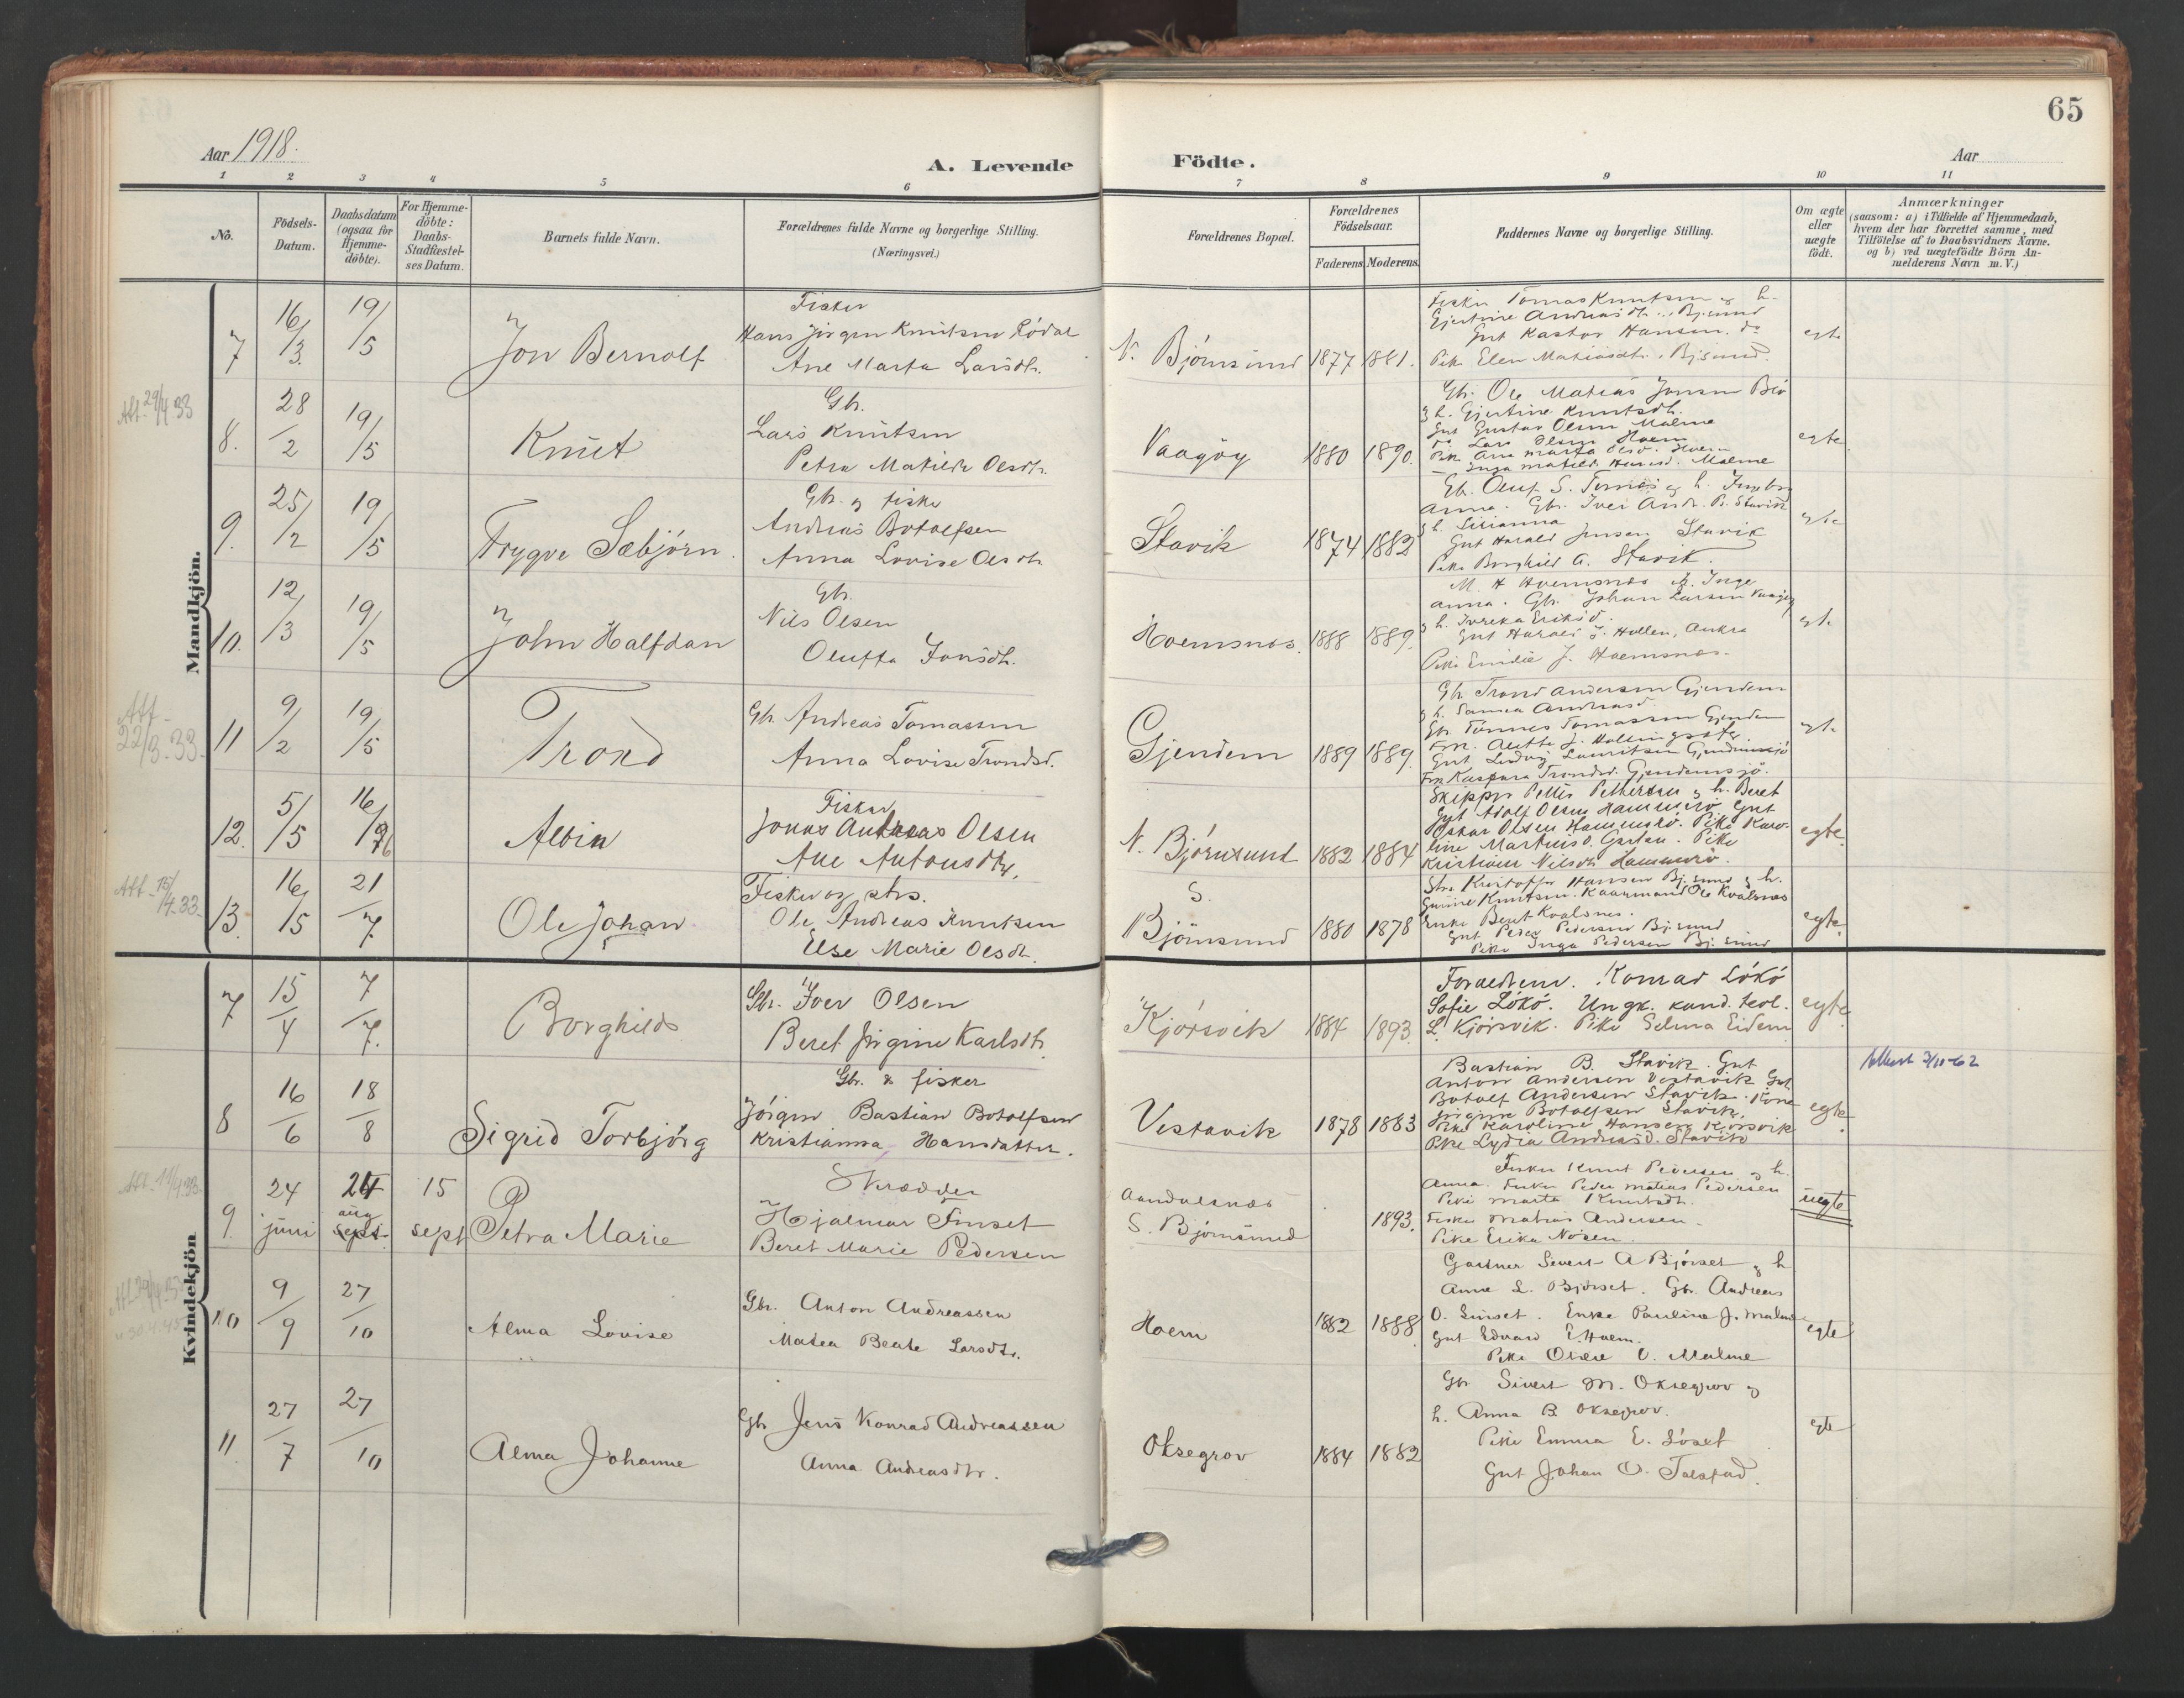 65
Aar 1918.
A. Levende
Födte.
Aar
1 2 3 4 5 6 7 8 9 10 11
No.
Födsels-
Datum.
Daabsdatum
(ogsaa for
Hjemme-
döbte).
For Hjemme-
döbte:
Daabs-
Stadfæstel-
ses Datum.
Barnets fulde Navn.
Forældrenes fulde Navne og borgerlige Stilling.
(Næringsvei.)
Forældrenes Bopæl.
Forældrenes
Födselsaar.
Faderens Moderens.
Faddernes Navne og borgerlige Stilling.
Om ægte
eller
uægte
födt.
Anmærkninger
(saasom: a) i Tilfælde af Hjemmedaab,
hvem der har forrettet samme, med
Tilföielse af to Daabsvidners Navne.
og b) ved uægtefödte Börn An-
melderens Navn m. V.)
Mandkjön.
7 16/3. 19/5 Jon Bernolf
Fisker
Hans Jørgen Knutsen Rödal
Ane Marta Larsdtr.
N. Björnsund 1877 1881.
Fisker Tomas Knutsen og h.
Gjertine Andreasdtr., Bj.sund
Gut Kastor Hansen do
Pike Elen Matiasdtr., Bj.sund.
egte
Att. 29/4 33
8. 28/2 19/5 Knut
Gb.
Lars Knutsen
Petra Matilde Olsdtr.
Vaagöy 1880 1890.
Gb. Ole Matias Jonsen
og h. Gjertine Knutsdtr.
Gut Gustav Olsen Malme
do Lars Olsen Hoem
Pike Ana Marta Olsd. Hoem
Inga Matilde Malme
egte
9. 25/2 19/5 Trygve Sæbjörn.
Gb. og fisker
Andreas Botolfsen
Anna Lovise Olsdtr.
Stavik 1874 1882
Gb. Oluf S. og h. Ingeborg
Anna. Gbr. Iver Andr. B. Stavik
og h.
Gut Harald Jensen Stavik
Pike Borghild A. Stavik.
egte
10. 12/3 19/5 John Halfdan
Gb.
Nils Olsen
Oluffa Jonsdtr.
Hoemsnes. 1888 1889.
M. H. Hoemsnes Inge
Anna. Gb. Johan Larsen Vaagöy
og h. Eriksd.
Gut Harald J. Hollen, Aukra
Pike Emilie J. Hoemsnes.
egte
Att. 22/3-33.
11 9/2 19/5 Trond
Gb Andreas Tomassen
Anna Lovise Trondsd.
Gjendem 1889 1889.
Gb Trond Andersen Gjendem
og h. Andreasd.
Gb. Tönnes Tomassen Gjendem
Frk. Alette J. Hollingsæter.
Gut Ludvig Lauritsen Gjendemsjö
Frk Kaspara Trondsd. Gjendemsjö.
egte
12. 5/5 16/6 Albin
Fisker
Jonas Andreas Olsen
Ane Antonsdtr.
N. Björnsund 1882 1884
Skipper Petter Pettersen og h. Beret
Gut Adolf Olsen Hammerö Gut
Oskar Olsen Hammerö. Pike Karo-
line Martinsd. Garden. Pike
Kristine Nilsdtr Hammerö.
egte.
Att. 15/4.33.
13. 16/5 21/7 Ole Johan
Fisker og strs.
Ole Andreas Knutsen
Else Marie Olsdtr.
S.
Björnsund 1880 1878
Strs Kristoffer Hansen Bj.sund og h.
Gurine Knutsen. Kaarmand Ole Kvalsnes
Enke Beret Kvalsnes.
Gut Peder Pedersen Bj.sund
Pike Inga Pedersen Bj.sund
egte.
Kvindekjön
7 15/4 7/7. Borghild
Gbr. Iver Olsen
Beret Jørgine Karlsdtr.
Kjörsvik 1884 1893.
Forældrene. Konrad Lökö
Sofie Lökö. Ungk. kand. teol.
L. Kjörsvik. Pike Selma Eidem
egte
8 16/6 18/8 Sigrid Torbjörg
Gbr. & fisker
Jörgen Bastian Botolfsen
Kristianna Hansdatter.
Vestavik 1878 1883
Bastian B. Stavik. Gut
Anton Andersen Vestavik Gut
Botolf Andersen Stavik. Kone
Jørgine Botolfsen Stavik.
Pike Karoline Hansen Kjörsvik
Pike Lydia Andreasd. Stavik
egte.
Attest 3/11-62
9. 24 juni 24 aug sept 15 sept Petra Marie
Skrædder
Hjalmar Finset
Beret Marie Pedersen
Aandalsnes
S. Björnsund
1893.
Fisker Knut Pedersen og h.
Anna. Fisker Peder Matias Pedersen
Pike Marta Knutsdtr.
Fisker Matias Andersen.
Pike Erika Nösen.
uegte
10 9/9 27/10 Alma Lovise
Gbr. Anton Andreassen
Matea Beate Larsdtr.
Hoem 1882 1888
Gartner Sivert A Björset og h
Anne L. Björset. Gbr. Andreas
O. Sunset. Enke Pauline J. Malme
Gut Edvard E. Hoem.
Pike O. Malme
egte
11. 27/7 27/10 Alma Johanne
Gb Jens Konrad Andreassen
Anna Andreasdtr.
Oksegrov 1884 1882
Gb Sivert M. Oksegrov og
h. Anna B. Oksegrov.
Pike Emma E. Löset
Gut Johan O. Tolstad.
egte